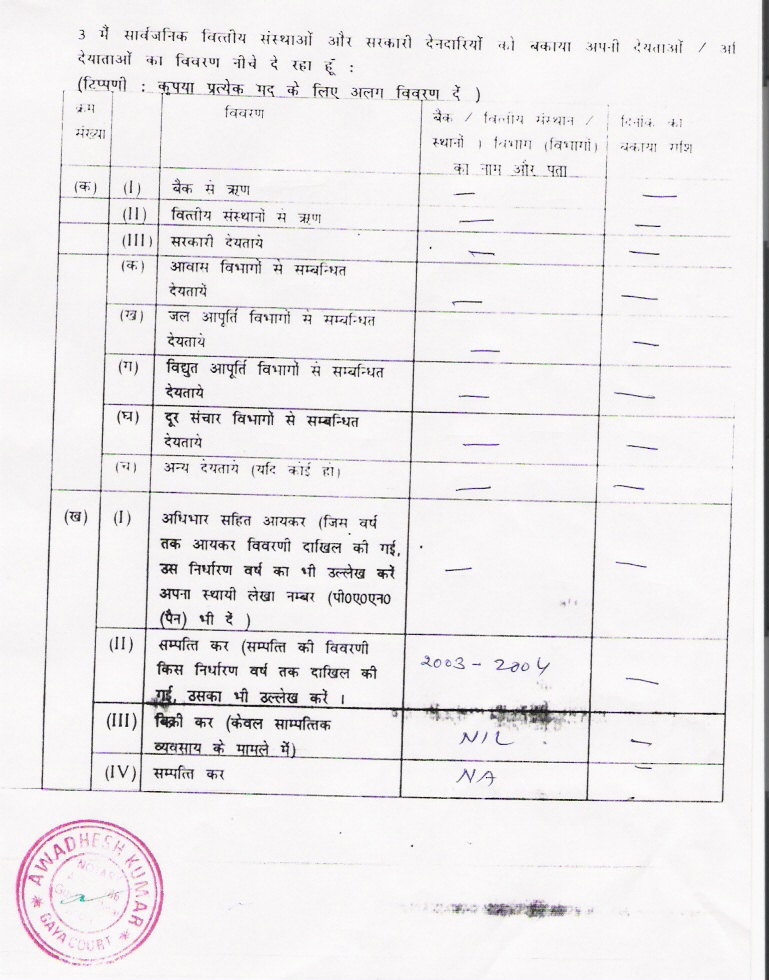 3 मैं सार्वजनिक वित्तीय संस्थाओं और सरकारी देनदारियों को बकाया अपनी देयताओं /
देयाताओं का विवरण नीचे दे रहा हूँ :
(टिप्पणी : कृपया प्रत्येक मद के लिए अलग विवरण दें )
क्रम संख्या
विवरण
बैंक / वित्तीय संस्थान /
स्थानों । विभाग (विभागों)
का नाम और पता
दिनांक का
बकाया राशि
(क) (I) बैंक से ऋण — —
(II) वित्तीय संस्थानों से ऋण — —
(III) सरकारी देयताये — —
(क) आवास विभागों से सम्बन्धित
देयताये — —
(ख) जल आपूर्ति विभागों से सम्बन्धित
देयताये — —
(ग) विद्युत आपूर्ति विभागों से सम्बन्धित
देयताये — —
(घ) दूर संचार विभागों से सम्बन्धित
देयताये — —
(च) अन्य देयताये (यदि कोई हो) — —
(ख) (I) अधिभार सहित आयकर (जिस वर्ष
तक आयकर विवरणी दाखिल की गई,
उस निर्धारण वर्ष का भी उल्लेख करें — —
अपना स्थायी लेखा नम्बर (पी०ए०एन०
(पैन) भी दें )
(II) सम्पत्ति कर (सम्पत्ति की विवरणी
किस निर्धारण वर्ष तक दाखिल की 2003 - 2004 —
गई, उसका भी उल्लेख करें ।
(III) बिक्री कर (केवल साम्पत्तिक
व्यवसाय के मामले में) NIL —
(IV) सम्पत्ति कर NA —
AWADHESH KUMAR
GAYA COURT